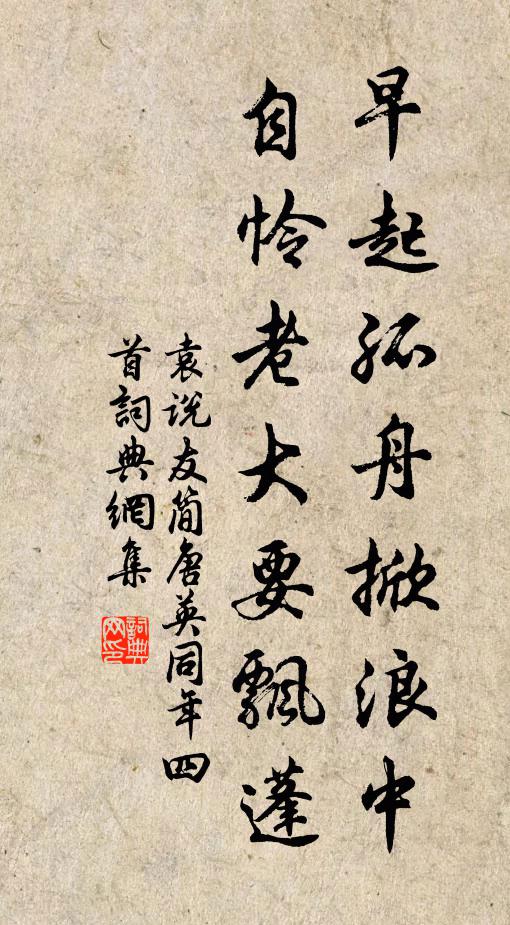 早起孤舟掀浪中
自怜老大要飄蓬
袁說友简唐英同年四
首詞典網集
詞典
网印